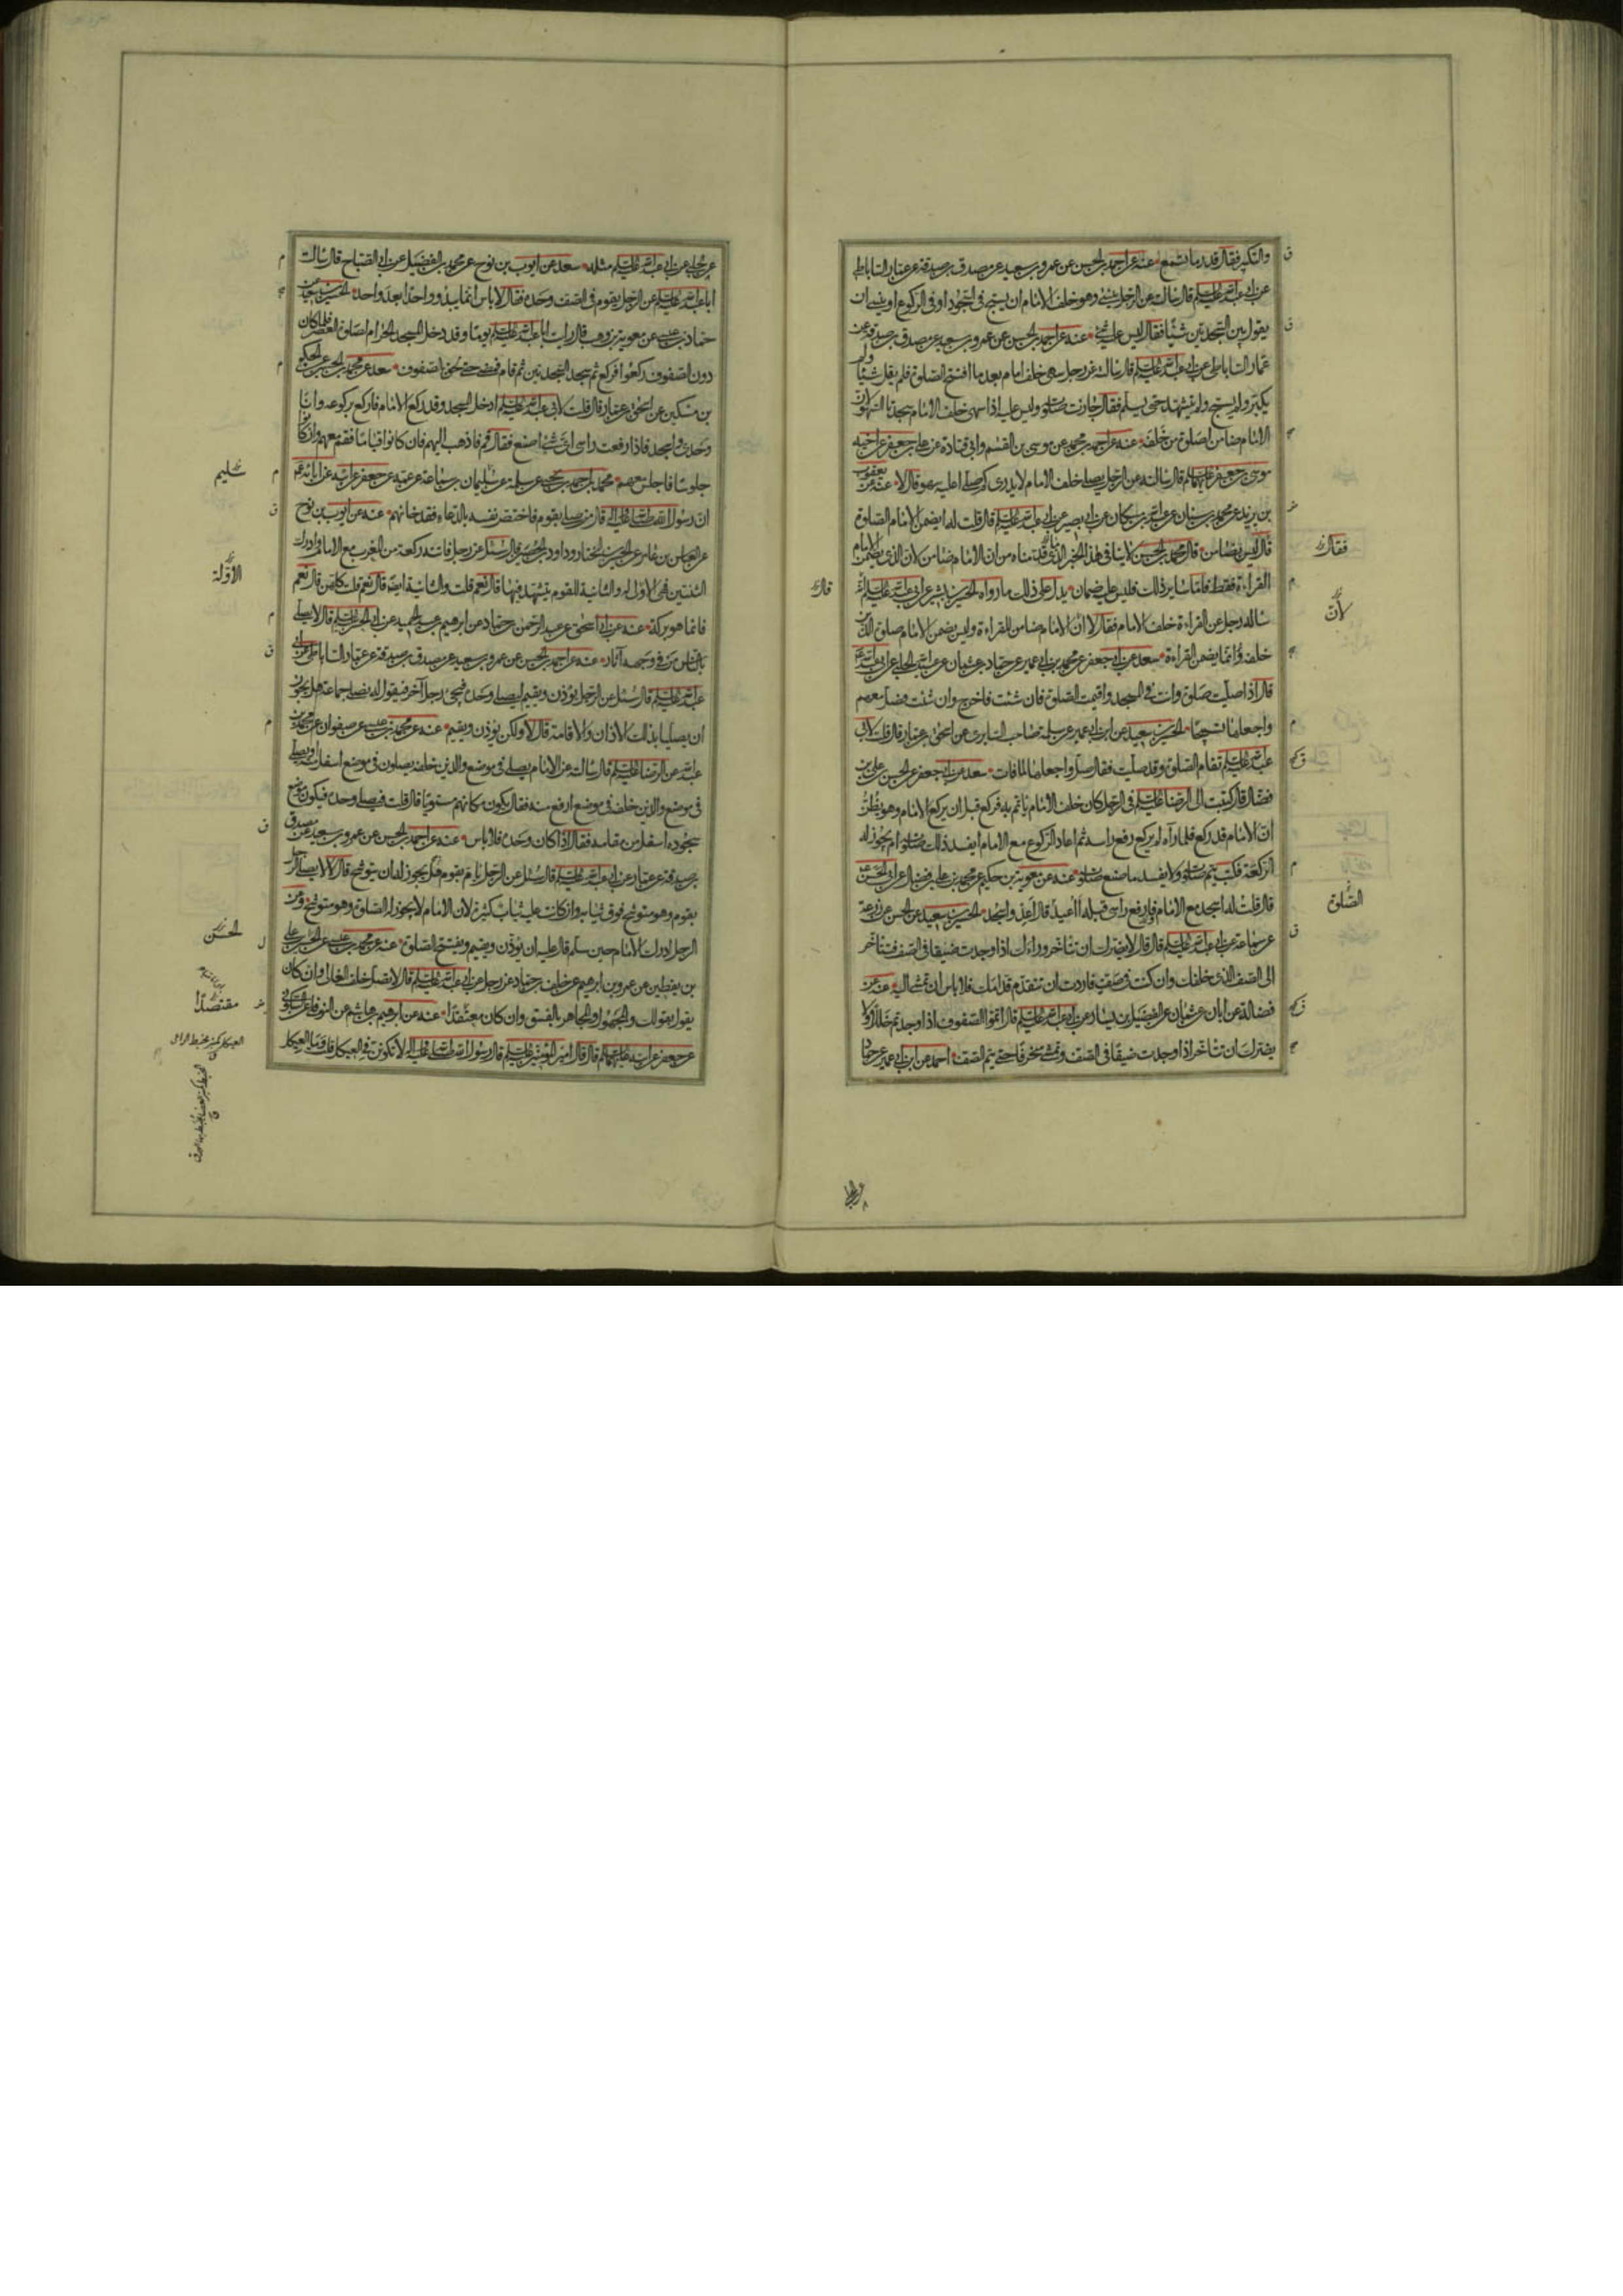 والتكبير فقال قدر ما تسمع عنه عن احمد بن الحسن عن عمرو بن سعيد عن مصدق بن صدقة عن عمار الساباطي
عن ابي عبد الله عليه السلم قال سالته عن الرجل ينسى وهو خلف الامام ان يسبح في السجود او في الركوع او ينسى ان
يقول بين السجدتين شيئا فقال ليس عليه شئ عنه عن احمد بن الحسن عن عمرو بن سعيد عن مصدق بن صدقة عن
عمار الساباطي عن ابي عبد الله عليه السلم قال سالته عن رجل سهى خلف امام بعد ما افتتح الصلوة فلم يقل شيئا ولم
يكبر ولم يسبح ولم يتشهد حتى يسلم فقال جازت صلوته وليس عليه اذا سهى خلف الامام سجدتا السهو لان
الامام ضامن لصلوة من خلفه عنه عن احمد بن محمد عن موسى بن القسم وابي قتادة عن علي بن جعفر عن اخيه
موسى بن جعفر عليهما السلم قال سالته عن الرجل يصلي خلف الامام لا يدري كم صلى اعليه سهو قال لا عنه عن يعقوب
بن يزيد عن محمد بن سنان عن عبد الله بن مسكان عن ابي بصير عن ابي عبد الله عليه السلم قال قلت له ايضمن الامام الصلوة
قال ليس بضامن قال محمد بن الحسن لا ينافي هذا الخبر الذي قدمناه من ان الامام ضامن لان الذي يضمن الامام
القراءة فقط فاما سائر ذلك فليس عليه ضمان يدل على ذلك ما رواه الحسين بن بشير عن ابي عبد الله عليه السلم انه
ساله رجل عن القراءة خلف الامام فقال لا ان الامام ضامن للقراءة وليس يضمن الامام صلوة الذين
خلفه وانما يضمن القراءة سعد عن ابي جعفر عن محمد بن ابي عمير عن حماد بن عثمان عن عبيد الله الحلبي عن ابي عبد الله
قال اذا صليت صلوة وانت في المسجد واقيمت الصلوة فان شئت فاخرج وان شئت فصل معهم
واجعلها تسبيحا الحسين بن سعيد عن ابن ابي عمير عن سلمة صاحب السابري عن اسحق بن عمار قال قلت لابي
عبد الله عليه السلم تقام الصلوة وقد صليت فقال صل واجعلها لما فات سعد عن ابي جعفر عن الحسن بن علي بن
فضال قال كتبت الى الرضا عليه السلم في الرجل كان خلف الامام ياتم به فركع قبل ان يركع الامام وهو يظن
ان الامام قد ركع فلما رآه لم يركع رفع راسه ثم اعاد الركوع مع الامام ايفسد ذلك صلوته ام يجوز له
الركعة فكتب يتم صلوته ولا يفسد ما صنع صلوته عنه عن معوية بن حكيم عن محمد بن علي بن فضال عن ابي الحسن
قال قلت له اسجد مع الامام فارفع راسي قبله أأعيد قال اعد واسجد الحسين بن سعيد عن الحسن عن زرعة
عن سماعة عن ابي عبد الله عليه السلم قال قال لا يضرك ان تتاخر وراءك اذا وجدت ضيقا في الصف فتتاخر
الى الصف الذي خلفك وان كنت في صف فاردت ان تتقدم قدامك فلا باس ان تمشي اليه عنه عن
فضالة عن ابان بن عثمان عن الفضيل بن يسار عن ابي عبد الله عليه السلم قال اتموا الصفوف اذا وجدتم خللا ولا
يضرك ان تتاخر اذا وجدت ضيقا في الصف وتمشي منحرفا حتى يتم الصف احمد عن ابن ابي عمير عن حماد
فقال
لان
الصلوة
قال
عن الحلبي
عن الحلبي عن ابي عبد الله عليه السلم مثله سعد عن ايوب بن نوح عن محمد بن الفضيل عن ابي الصباح قال سالت
ابا عبد الله عليه السلم عن الرجل يقوم في الصف وحده فقال لا باس انما يبدو واحدا بعد واحد الحسين بن سعيد عن
حماد بن عيسى عن معوية بن وهب قال رايت ابا عبد الله عليه السلم يوما وقد دخل المسجد الحرام لصلوة العصر فلما كان
دون الصفوف ركعوا فركع ثم سجد السجدتين ثم قام فمضى حتى لحق بالصفوف سعد عن محمد بن الحسين عن الحكم
بن مسكين عن اسحق بن عمار قال قلت لابي عبد الله عليه السلم ادخل المسجد وقد ركع الامام فاركع بركوعه وانا
وحدي واسجد فاذا رفعت راسي اي شئ اصنع فقال قم فاذهب اليهم فان كانوا قياما فقم معهم وان كانوا
جلوسا فاجلس معهم محمد بن احمد بن يحيى عن سلمة عن سليمان بن سماعة عن عمه عن جعفر عن ابيه عن ابائه عم
ان رسول الله صلى الله عليه واله قال من صلى بقوم فاختص نفسه بالدعاء فقد خانهم عنه عن ايوب بن نوح
عن العباس بن عامر عن الحسين بن المختار وداود بن الحصين قال سئل عن رجل فاتته ركعة من المغرب مع الامام وادرك
الثنتين فهي الاولى له والثانية للقوم يتشهد فيها قال نعم قلت والثانية ايضا قال نعم قلت كلهن قال نعم
فانما هو بركة عنه عن ابي اسحق عن عبد الرحمن بن حماد عن ابراهيم بن عبد الحميد عن ابي الحسن عليه السلم قال لا يصلي
بالناس من في وجهه آثار عنه عن احمد بن الحسن عن عمرو بن سعيد عن مصدق بن صدقة عن عمار الساباطي عن ابي
عبد الله عليه السلم قال سئل عن الرجل يؤذن ويقيم ليصلي وحده فيجئ رجل آخر فيقول له نصلي جماعة هل يجوز
ان يصليا بذلك الاذان والاقامة قال لا ولكن يؤذن ويقيم عنه عن محمد بن عيسى عن صفوان عن محمد بن
عبد الله عن الرضا عليه السلم قال سالته عن الامام يصلي في موضع والذين خلفه يصلون في موضع اسفل منه او يصلي
في موضع والذين خلفه في موضع ارفع منه فقال يكون مكانهم مستويا قال قلت فيصلي وحده فيكون موضع
سجوده اسفل من مقامه فقال اذا كان وحده فلا باس عنه عن احمد بن الحسن عن عمرو بن سعيد عن مصدق
بن صدقة عن عمار عن ابي عبد الله عليه السلم قال سئل عن الرجل يؤم بقوم هل يجوز له ان يتوشح قال لا لا يصلي الرجل
بقوم وهو متوشح فوق ثيابه وان كانت عليه ثياب كثيرة لان الامام لا يجوز له الصلوة وهو متوشح وعن
الرجل ادرك الامام حين سلم قال عليه ان يؤذن ويقيم ويفتتح الصلوة عنه عن محمد بن عيسى عن الحسن بن علي
بن يقطين عن عمرو بن ابراهيم عن خلف بن حماد عن رجل عن ابي عبد الله عليه السلم قال لا تصل خلف الغالي وان كان
يقول بقولك والمجهول والمجاهر بالفسق وان كان معتقدا عنه عن ابراهيم بن هاشم عن النوفلي عن السكوني
عن جعفر عن ابيه عليهما السلم قال قال امير المؤمنين عليه السلم قال رسول الله صلى الله عليه واله لا تكونن في العيكل قلت وما العيكل
سليم
الاولة
الحسن
مقتصدا